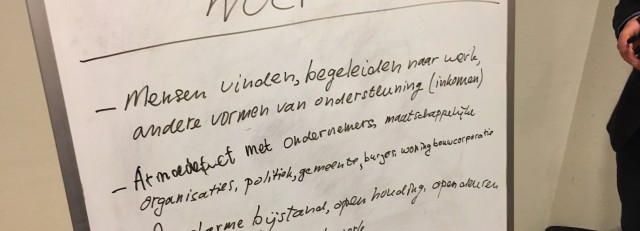 - Mensen vinden, begeleiden naar werk,
andere vormen van ondersteuning (inkomen)
- Armoedepact met ondernemers, maatschappelijke
organisaties, politiek, gemeente, burger, woningbouwcorporatie
bijstand, open houding, open deuren